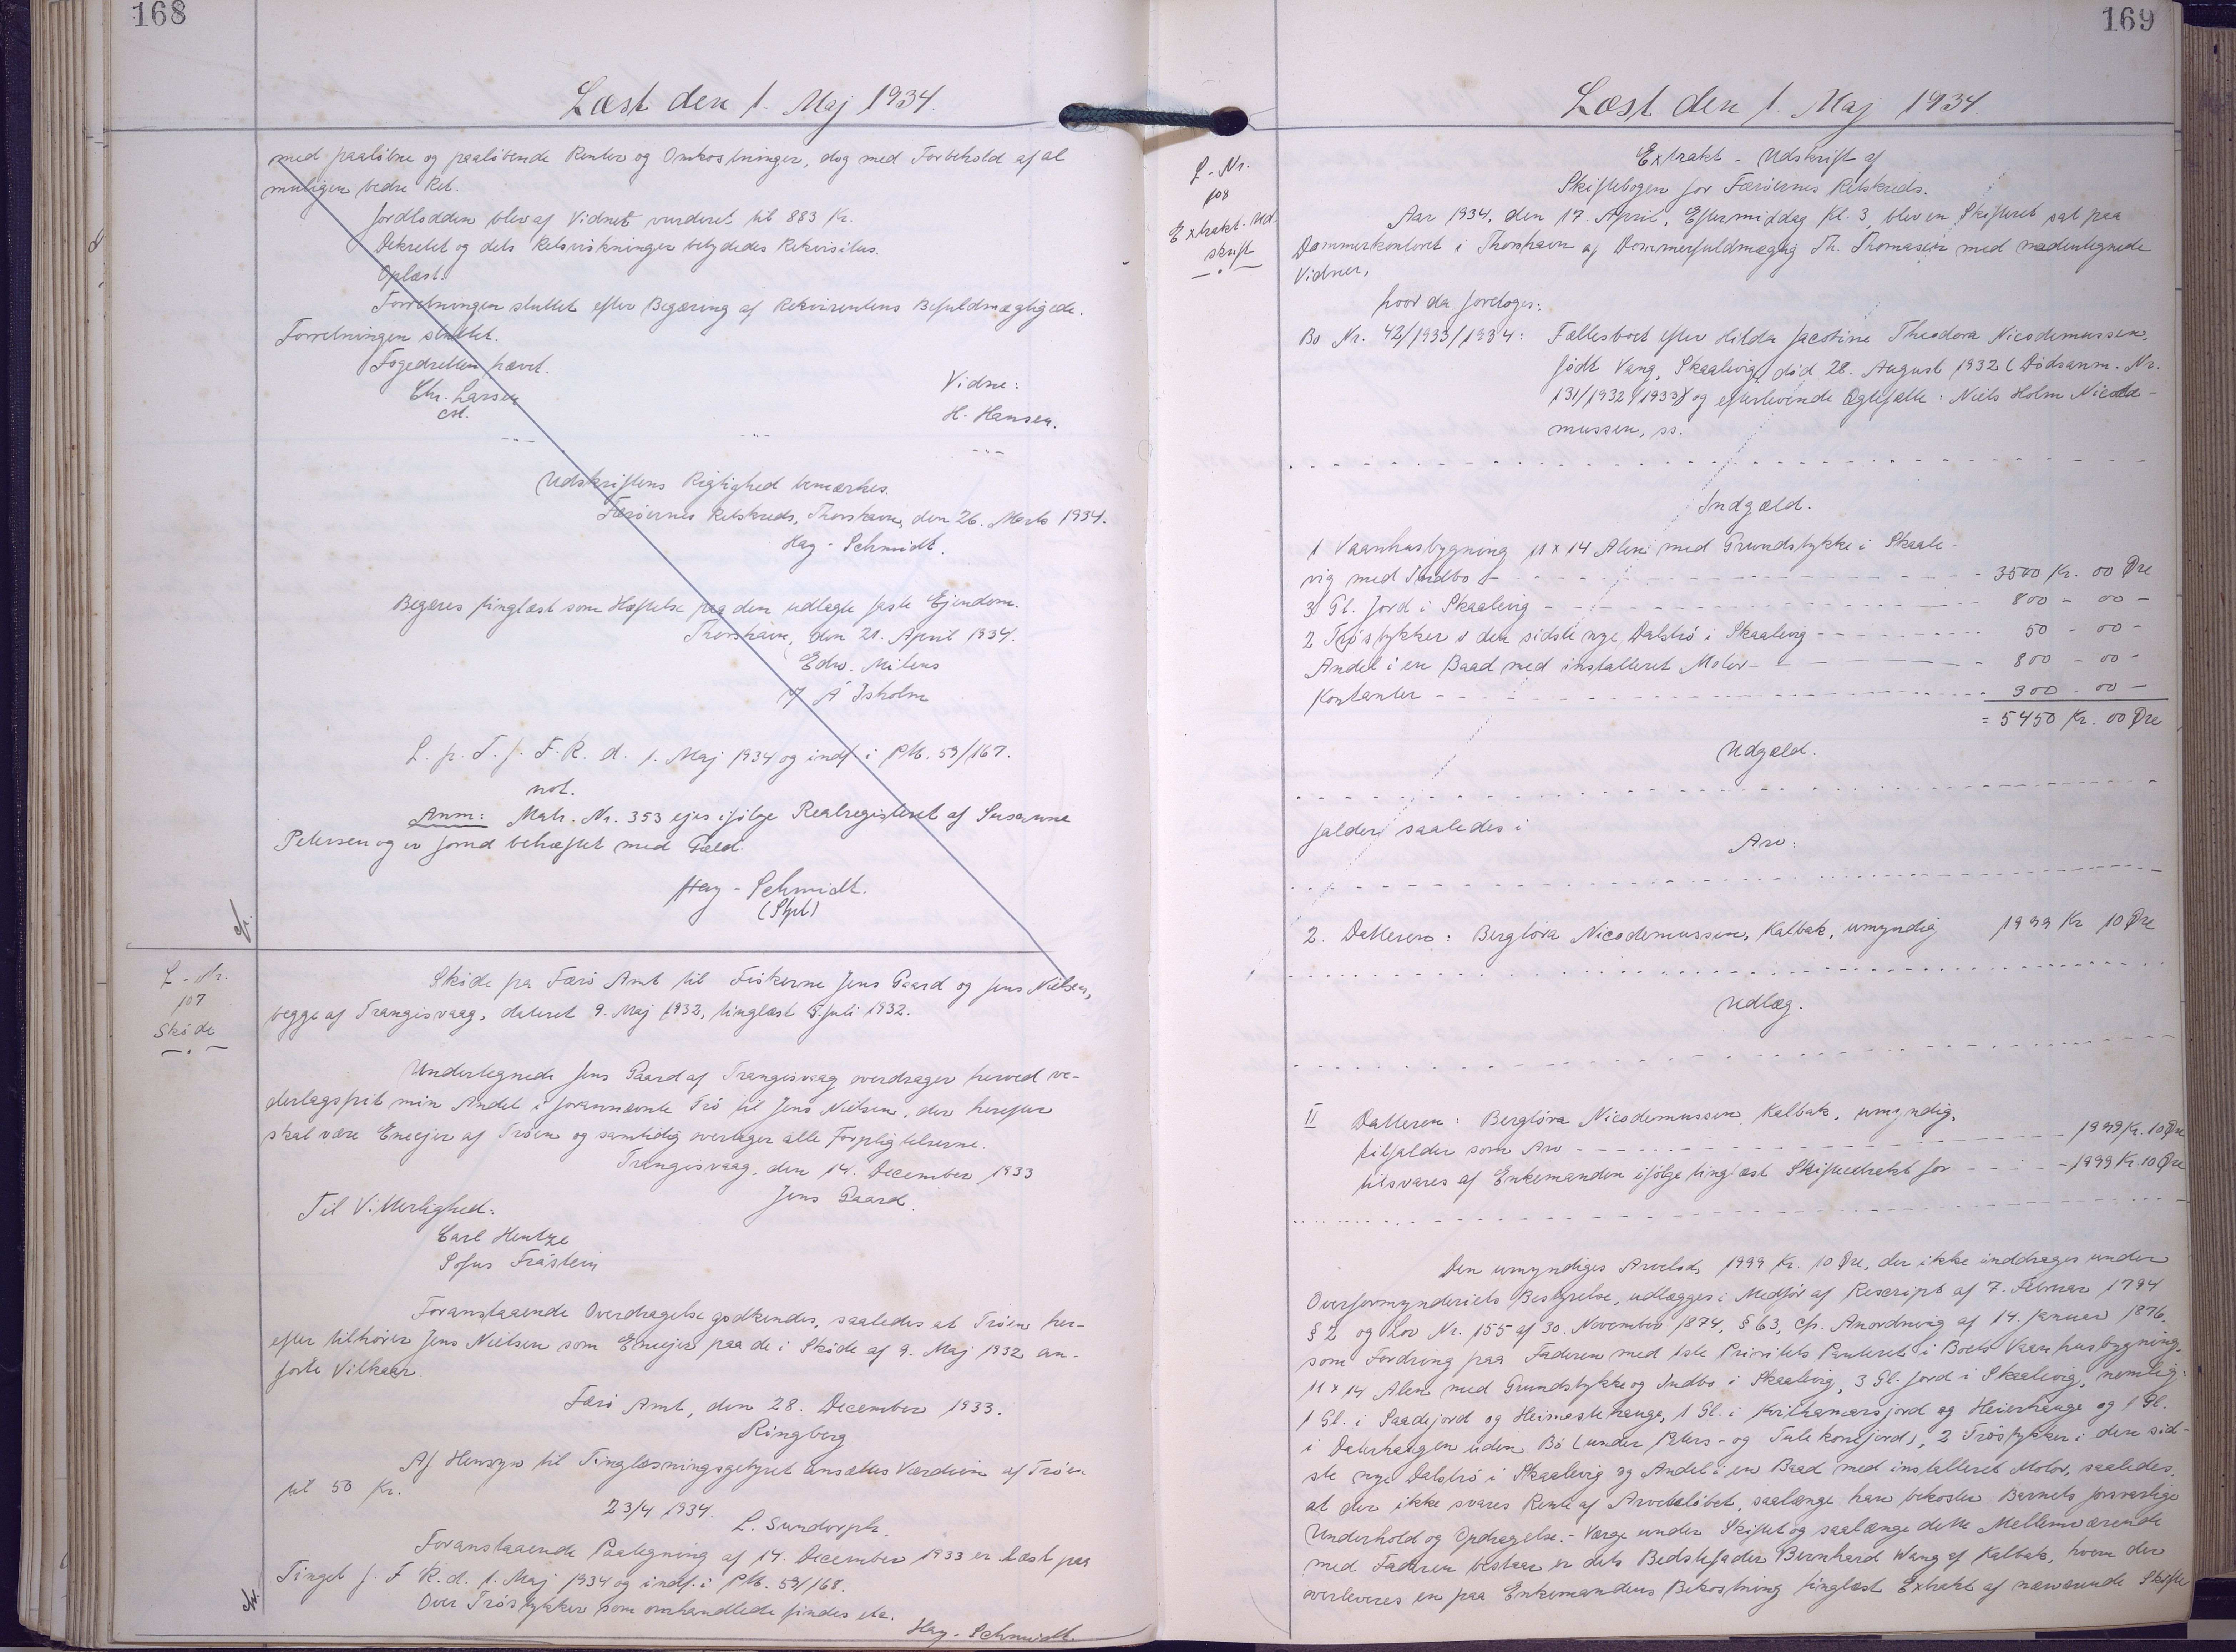 168
Læst den 1. Maj 1934.
med paaløbne og paaløbende Renter og Omkostninger, dog med Forbehold af al
muligen bedre Ret.
Jordlodden blev af Vidnet vurderet til 883 Kr.
Dekretet og dets Retsvirkninger betydedes Rekvisitus.
Oplæst.
Forretningen sluttet efter Begæring af Rekvirentens Befuldmægtigede.
Forretningen sluttet.
Fogedretten hævet.
Chr. Larsen
cst.
Vidne:
H. Hansen.
Udskriftens Rigtighed bemærkes.
Færøernes Retskreds, Thorshavn, den 26. Marts 1934.
Hay-Schmidt.
Begæres tinglæst som Hæftelse paa den udlagte faste Ejendom.
Thorshavn, den 21. April 1934.
Edw. Mitens
/ Á Isholm
L. p. T. f. F. R. d. 1. Maj 1934 og indf. i PM. 59/167.
not.
Anm: Matr. Nr. 353 ejes ifølge Realregisteret af Susanne
Petersen og er forud behæftet med Gæld.
Hay-Schmidt.
(Stpl)
cfr.
L-Nr.
107
Skøde
Skøde fra Færø Amt til Fiskerne Jens Gaard og Jens Nielsen,
begge af Trangisvaag, dateret 9. Maj 1932, tinglæst 5. Juli 1932.
Undertegnede Jens Gaard af Trangisvaag overdrager herved ve-
derlagsfrit min Andel i forannævnte Trø til Jens Nielsen, der herefter
skal være Eneejer af Trøen og samtidig overtager alle Forpligtelserne.
Trangisvaag, den 14. December 1933
Jens Gaard.
Til Vitterlighed:
Carl Hentze
Sofus Trástein
Foranstaaende Overdragelse godkendes, saaledes at Trøen her-
efter tilhører Jens Nielsen som Eneejer paa de i Skøde af 9. Maj 1932 an-
førte Vilkaar.
Færø Amt, den 28. December 1933.
Ringberg
Af Hensyn til Tinglæsningsgebyret ansættes Værdien af Trøen
til 50 Kr.
23/4 1934.
L. Sundorph.
Foranstaaende Paategning af 14. December 1933 er læst paa
Tinget f. F R. d. 1. Maj 1934 og indf. i PM. 59/168.
Over Trøstykker som omhandlede findes etc.
Hay-Schmidt.
169
Læst den 1. Maj 1934.
L-Nr.
108
Extrakt-Ud-
skrift
Extrakt-Udskrift af
Skiftebogen for Færøernes Retskreds.
Aar 1934, den 17. April, Eftermiddag Kl. 3, blev en Skifteret sat paa
Dommerkontoret i Thorshavn af Dommerfuldmægtig Th. Thomasen med nedentegnede
Vidner,
hvor da foretoges:
Bo Nr. 42/1933/1934: Fællesboet efter Hilda Jacobine Theodora Nicodemussen,
født Vang, Skaalevig, død 28. August 1932 (Dødsanm. Nr.
131/1932/1933) og efterlevende Ægtefælle: Niels Holm Nicode-
mussen, ss.
Indgæld.
1 Vaanhusbygning 11 x 14 Alen med Grundstykke i Skaale-
vig med Indbo - 3500 Kr. 00 Øre
3 Gl. Jord i Skaalevig - 800 - 00 -
2 Trøstykker i den sidste nye Dalstrø i Skaalevig - 50 - 00 -
Andel i en Baad med installeret Motor - 800 - 00 -
Kontanter - 300 - 00 -
= 5450 Kr. 00 Øre
Udgæld.
falder saaledes i
Arv:
2. Datteren: Bergtóra Nicodemussen, Kalbak, umyndig 1999 Kr 10 Øre
Udlæg.
II Datteren: Bergtóra Nicodemussen, Kalbak, umyndig,
tilfalder som Arv - 1999 Kr. 10 Øre
tilsvares af Enkemanden ifølge tinglæst Skifteextrakt for - 1999 Kr. 10 Øre
Den umyndiges Arvelod, 1999 Kr. 10 Øre, der ikke inddrages under
Overformynderiets Bestyrelse, udlægges i Medfør af Rescript af 7. Februar 1794
§ 2 og Lov Nr. 155 af 30. November 1874, § 63, cfr. Anordning af 14. Januar 1876,
som Fordring paa Faderen med 1ste Prioritets Panteret i Boets Vaanhusbygning,
11 x 14 Alen med Grundstykke og Indbo i Skaalevig, 3 Gl. Jord i Skaalevig, nemlig:
1 Gl. i Saadejord og Heimastehauge, 1 Gl. i Kvithamarsjord og Heierhauge og 1 Gl.
i Daterhaugen uden Bø (under Peters- og jord), 2 Trøstykker i den sid-
ste nye Dalstrø i Skaalevig og Andel i en Baad med installeret Motor, saaledes,
at der ikke svares Rente af Arvebeløbet, saalænge han bekoster Barnets forsvarlige
Underhold og Opdragelse. - Værge under Skiftet og saalænge dette Mellemværende
med Faderen bestaar er dets Bedstefader Bernhard Wang af Kalbak, hvem der
overleveres en paa Enkemandens Bekostning tinglæst Extrakt af nærværende Skifte